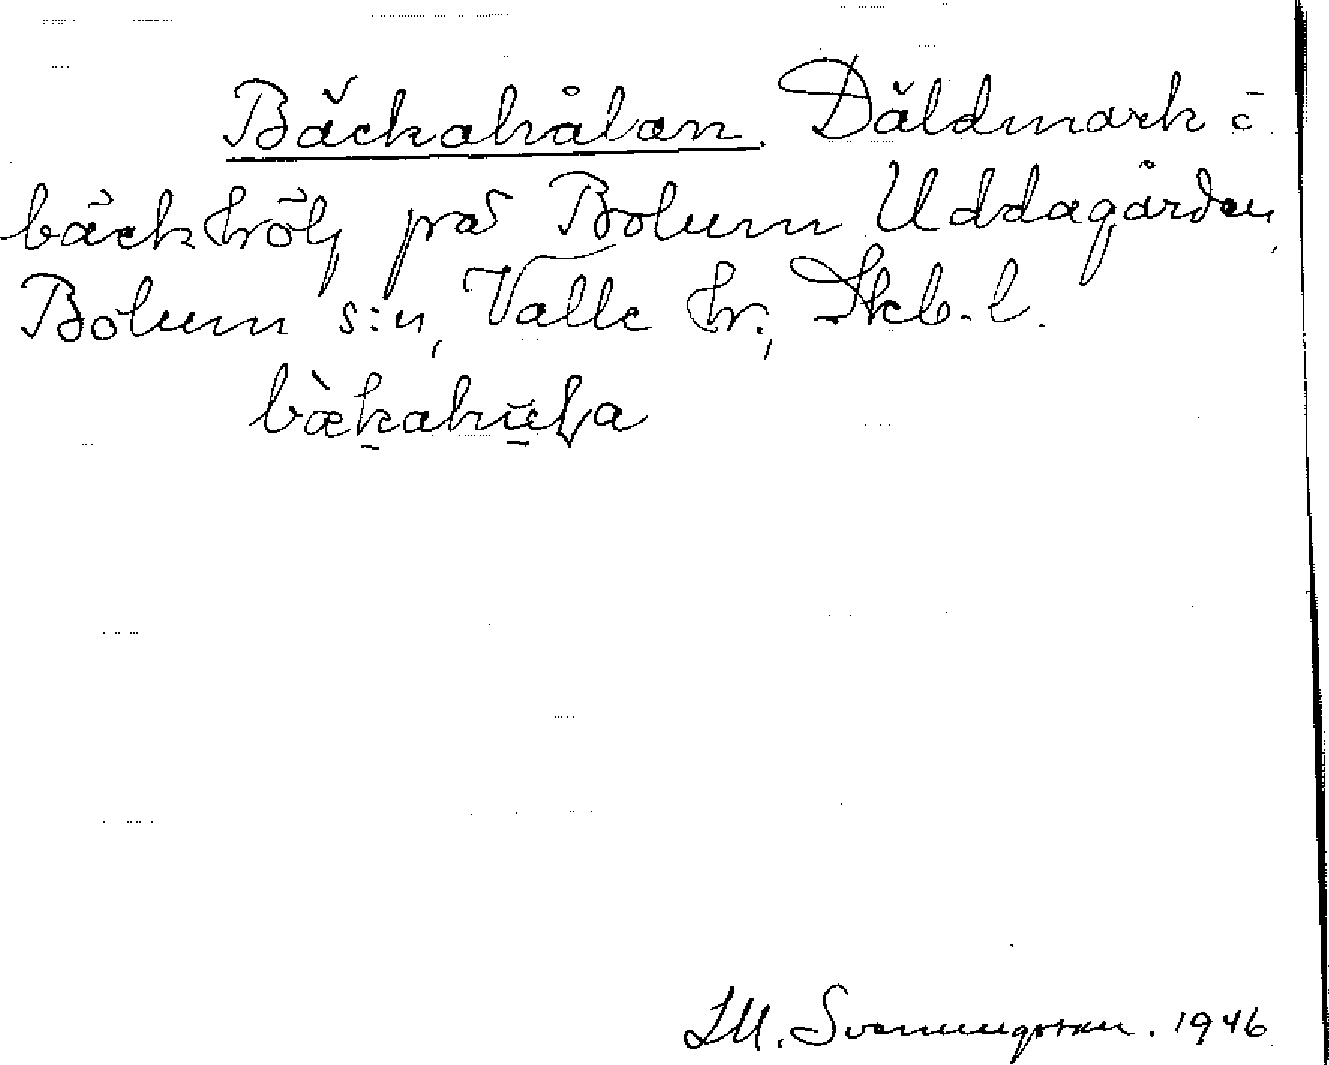 Bäckahålan. Däldmark =
bäckhölj på Bolum Uddagården,
Bolum s:n, Valle hr., Skb. l.
bæ̀kahu̇la
LM. Svenungsson. 1946